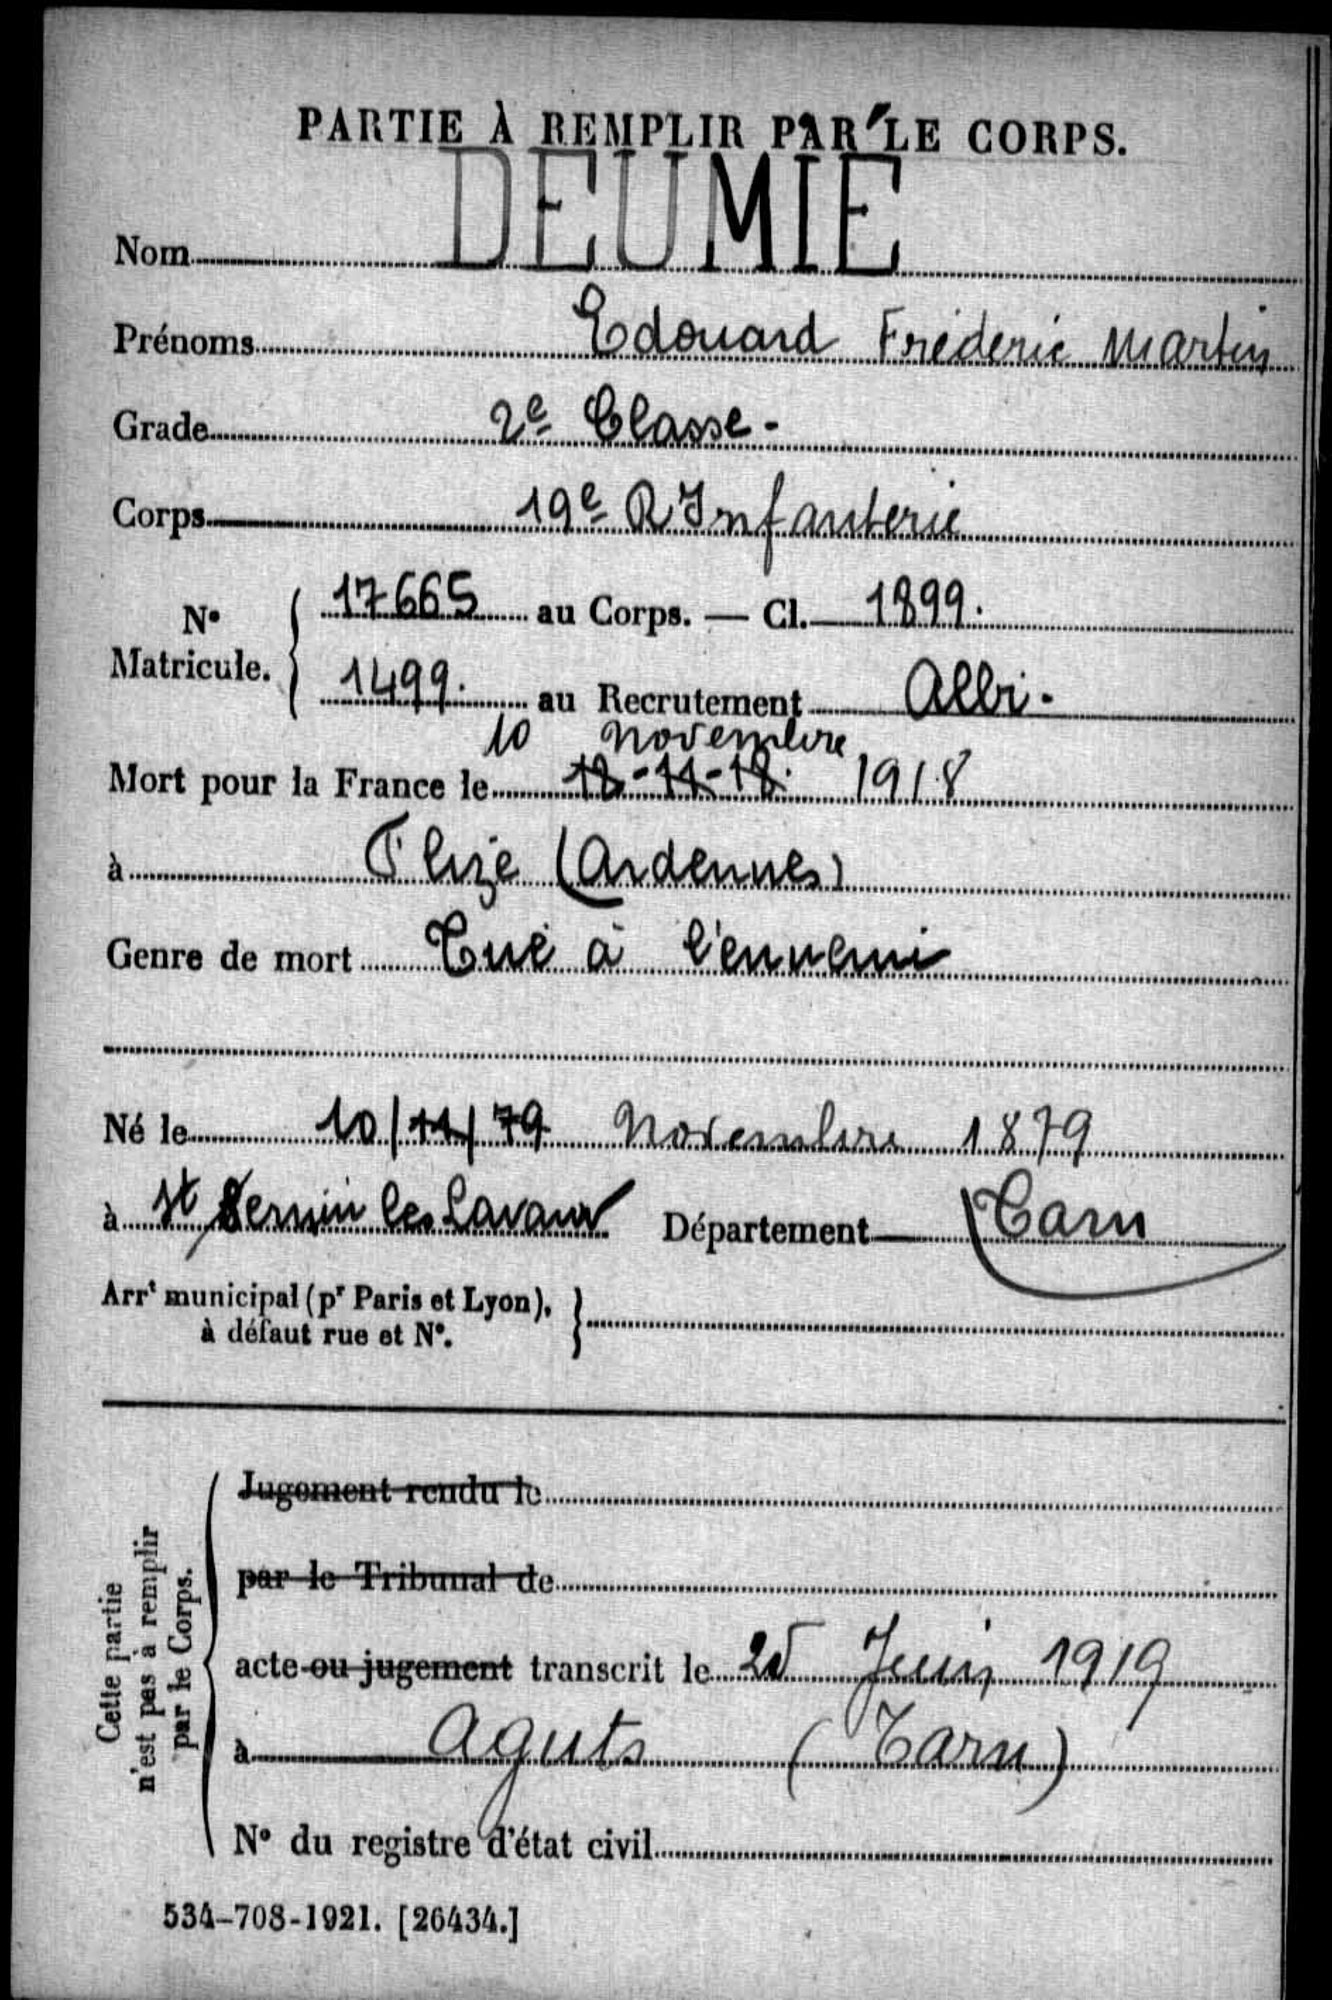 PARTIE À REMPLIR PAR LE CORPS.
Nom DEUMIE
Prénoms Edouard Fréderic Martin
Grade 2e Classe -
Corps 19e R Infanterie
No Matricule. 17665 au Corps. — Cl. 1899.
1499. au Recrutement Albi -
10 novembre
Mort pour la France le 12-11-18. 1918
à Flize (Ardennes)
Genre de mort Tué à l'ennemi
Né le 10/11/79 Novembre 1879
à St Sernin les Lavaur Département Tarn
Arrt municipal (pr Paris et Lyon),
à défaut rue et No.
Cette partie
n'est pas à remplir
par le Corps.
Jugement rendu le
par le Tribunal de
acte ou jugement transcrit le 25 Juin 1919
à Aguts (Tarn)
No du registre d'état civil
534-708-1921. [26434.]